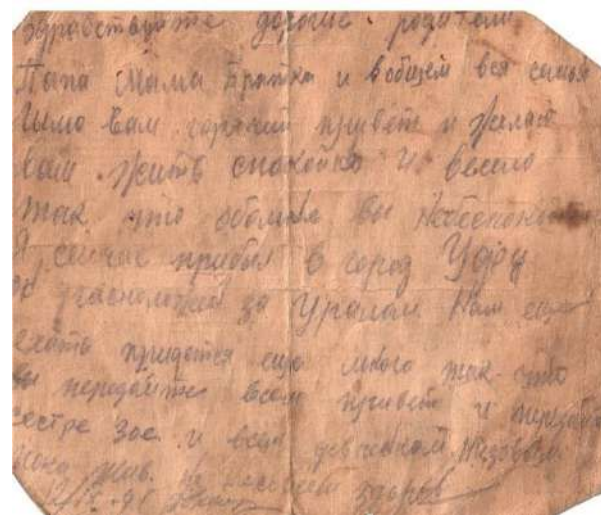 Здравствуйте дорогие родители
Папа Мама Братка и вобщем вся семья
Шлю вам горячий привет и желаю
вам жить спокойно и весело
так что обомне вы
Я сейчас прибыл в город
он расположен за Уралом Нам еще
ехать придется еще много так что
вы передайте всем привет и передайте
сестре Зое и всем девченкам
пока жив. здоров